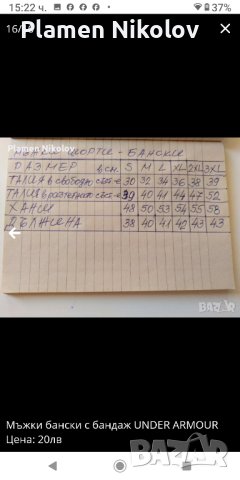 15:22 ч.
37%
16/
Plamen Nikolov
Plamen Nikolov
МЪЖКИ ШОРТИ - БАНСКИ
РАЗМЕР В СМ. S M L XL 2XL 3XL
ТАЛИЯ В СВОБОДНО СЪСТ-Е 30 32 34 36 38 39
ТАЛИЯ В РАЗТЕГНАТО СЪСТ-Е 39 40 41 44 47 52
ХАНШ 48 50 53 54 55 58
ДЪЛЖИНА 38 40 41 42 43 43
Bazar.bg
Мъжки бански с бандаж UNDER ARMOUR
Цена: 20лв
Bazar.bg